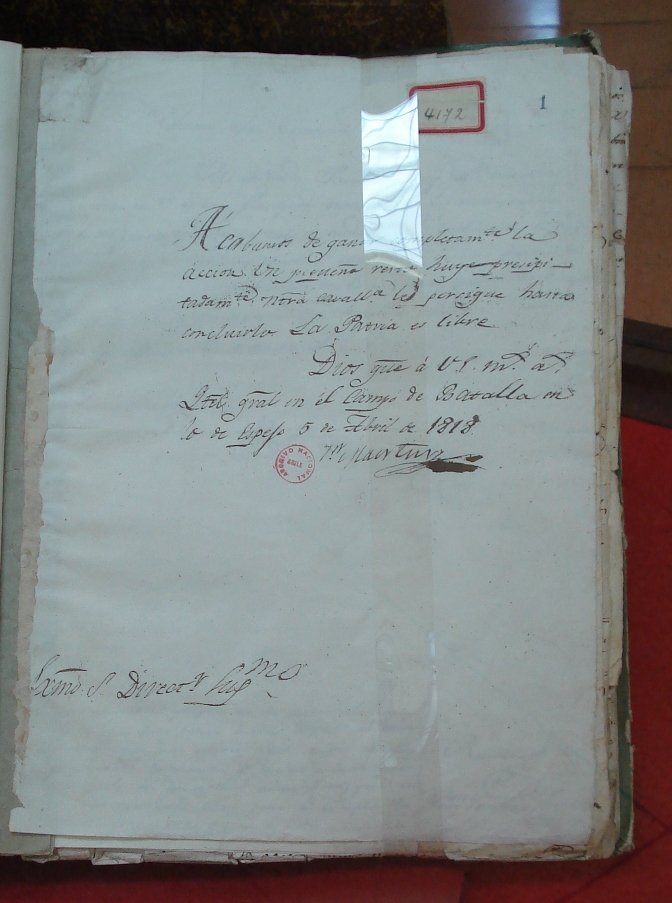 4172
1
Acabamos de ganar completamte la
accion. Un pequeño resto huye precipi-
tadamte ntra cavalla lo persigue hasta
concluirlo La Patria es libre
Dios gue á V.E. ms as
Qtel gral en el Campo de Batalla en
lo de Espejo 5 de Abril de 1818
Sn Martin
ARCHIVO NACIONAL
CHILE
Exmo. S. Director Supmo